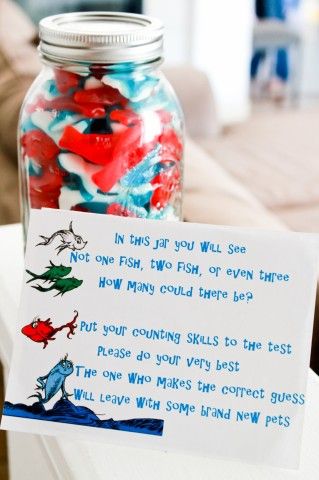 In this jar you will see
Not one fish, two fish, or even three
How many could there be?
Put your counting skills to the test
Please do your very best
The one who makes the correct guess
Will leave with some brand new pets